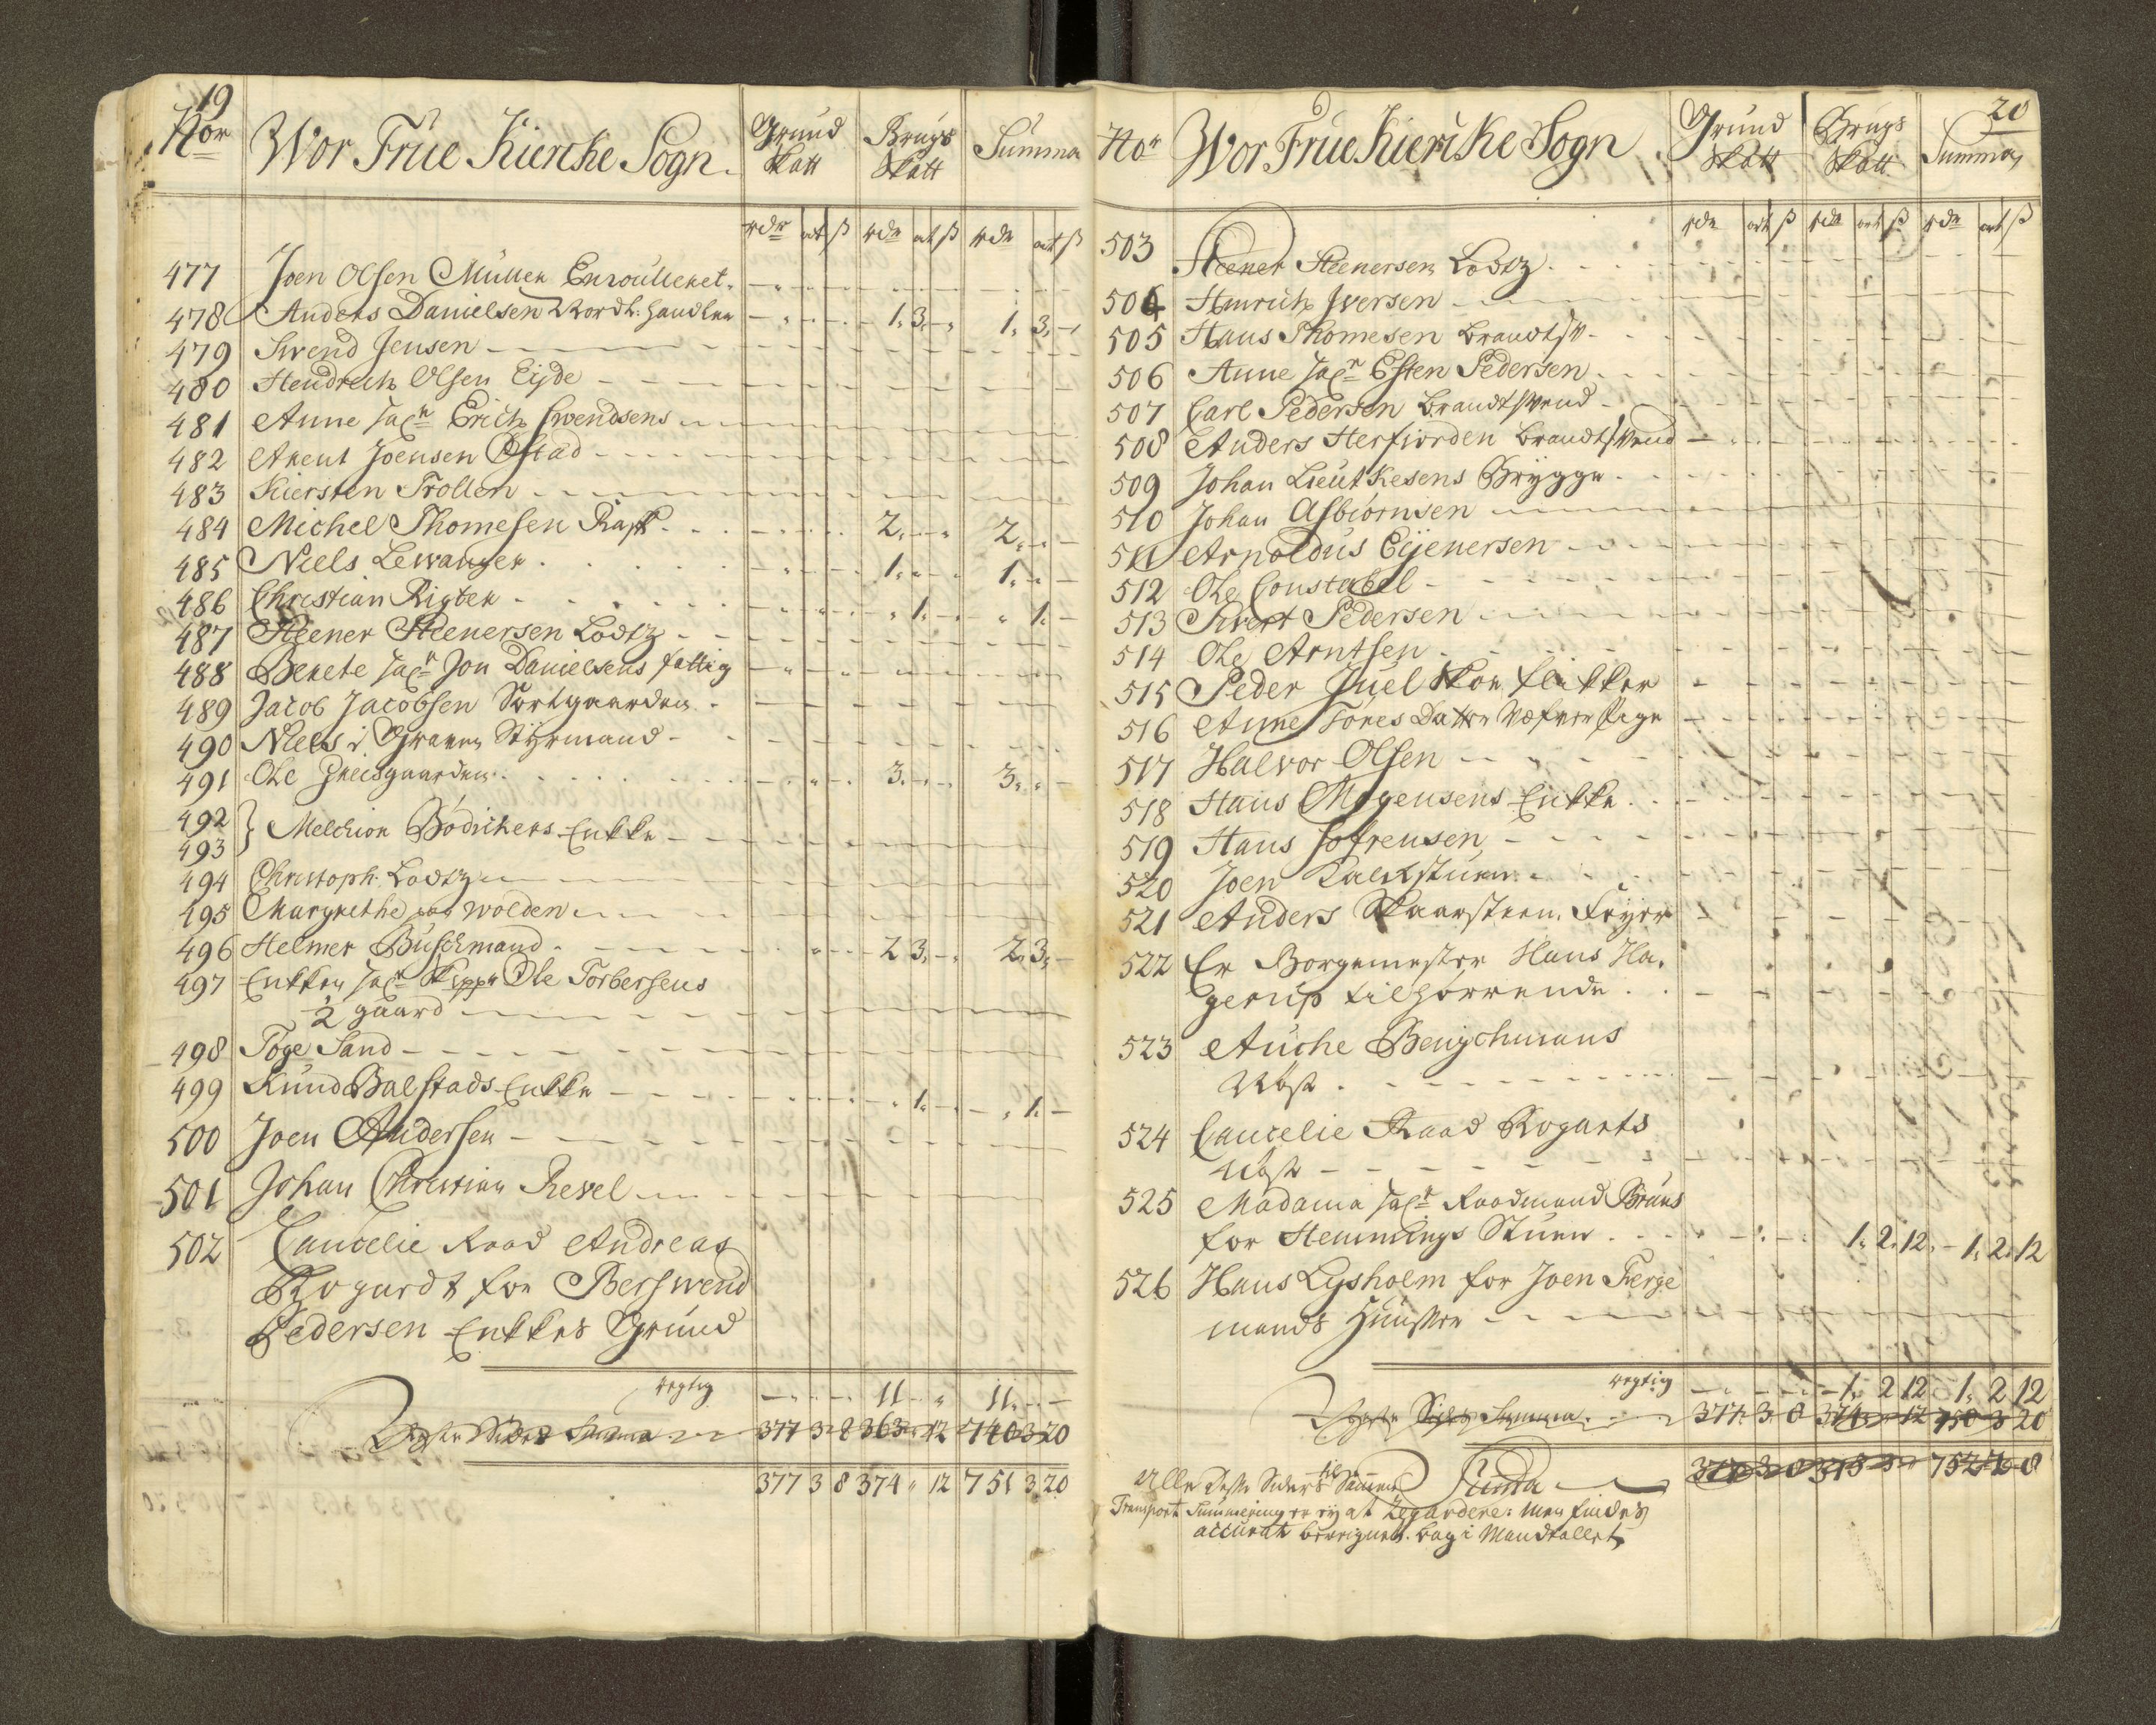 19
Nor Wor Frue Kiercke Sogn. Grund Skatt Brugs Skatt Summa
rdr ort ß rdr ort ß rdr ort ß
477 Joen Olsen Müller Enroulleret.
478 Anders Danielsen Nordl: handler 1. 3. - 1. 3. -
479 Swend Jensen
480 Hendrich Olsen Eyde
481 Anne sal Erich Swendsens
482 Arent Joensen Østad
483 Kiersten Trollen
484 Michel Thomesen Rask 2. - 2. -
485 Niels Lewanger 1. - 1. -
486 Christian Rigter 1. - 1. -
487 Steener Steenersen Lodtz
488 Berete sal Jon Danielsens fattig
489 Jacob Jacobsen Sortgaarden
490 Niels i Graven Styrmand
491 Ole Gresgaarden 3. - 3. -
492
493 } Melchior Bödichers Enkke
494 Christoph. Lodtz
495 Margrethe paa Wolden
496 Helmer Buschmand 2 3. - 2. 3. -
497 Enkken sal Skippr Ole Torbersens
½ gaard
498 Toge Sand
499 Knud Balstads Enkke 1. - 1. -
500 Joen Andersen
501 Johan Christian Resel
502 Cancelie Raad Andreas
Rogardt for Berswend
Pedersen Enkkes Grund
rigtig 11 - 11. -
Sides Summa 377 3 8 363 " 12 740 3 20
377 3 8 374 " 12 751 3 20
20
Nor Wor Frue Kiercke Sogn Grund Skatt Brugs Skatt Summa
rdr ort ß rdr ort ß rdr ort ß
503 Steener Steenersen Lodtz
504 Hinrich Iversen
505 Hans Thomesen Brandtsv
506 Anne sal Esten Pedersen
507 Carl Pedersen Brandtsvend
508 Anders Herfiorden Brandtsvend
509 Johan Lieutkesens Brygge
510 Johan Asbiørnsen
511 Arnoldus Eijenersen
512 Ole Constabel
513 Siwert Pedersen
514 Ole Arntsen
515 Peder Juel Skoe flikker
516 Anne Tores Datter Væfver Pige
517 Halvor Olsen
518 Hans Mogensens Enkke
519 Hans Sofrensen
520 Joen Kalckstuen
521 Anders Skaarsteen Feyer
522 Er Borgemester Hans Ha-
gerup tilhørrende
523 Anche Bengchmans
524 Cancelie Raad Rogarts
525 Madama sal Raadmand Bruns
for Hemmings Stuen 1. 2. 12. - 1. 2. 12
526 Hans Lysholm for Joen Ferge
mands Huuser
rigtig 1. 2 12 1. 2 12
Sides Summa 377 3 8 374 12 750 3 20
Summa 752 2 8
Alle disse Siders til Sammen
Transport Summering er ey at Regardere: men findes
accurat beregnet bag i Mandtallet